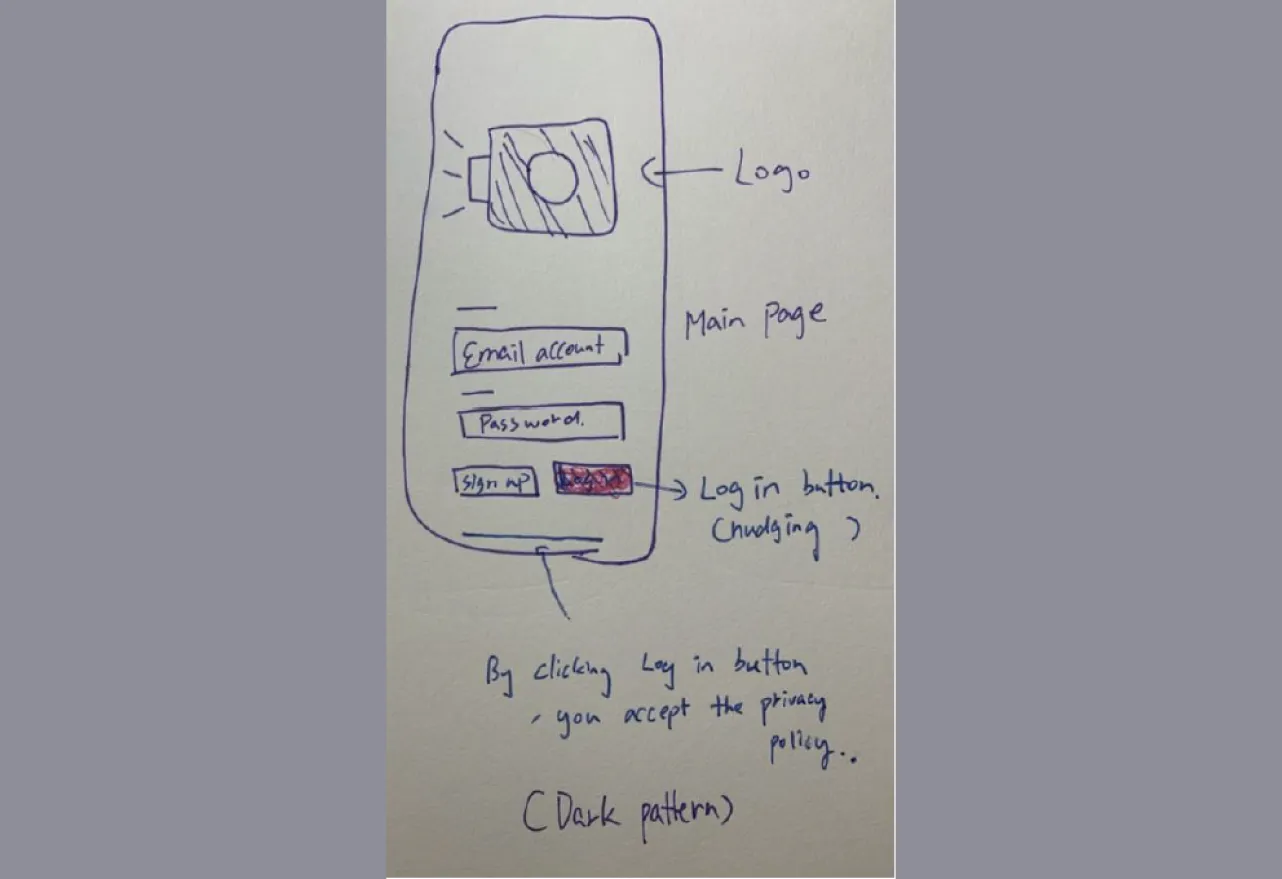 Logo
Main Page
Email account
Password.
Sign up
Log in
Log in button.
(hudging )
By clicking Log in button
, you accept the privacy
policy..
(Dark pattern)